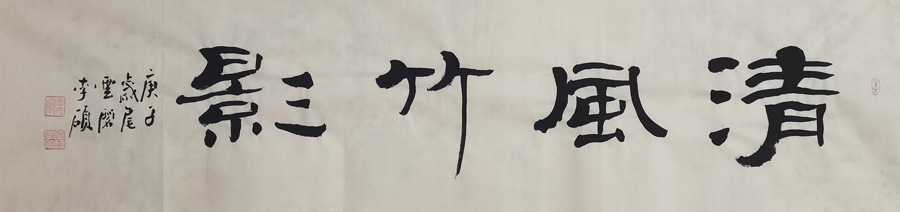 清風竹影
庚子
歲尾
雲閣
李碩